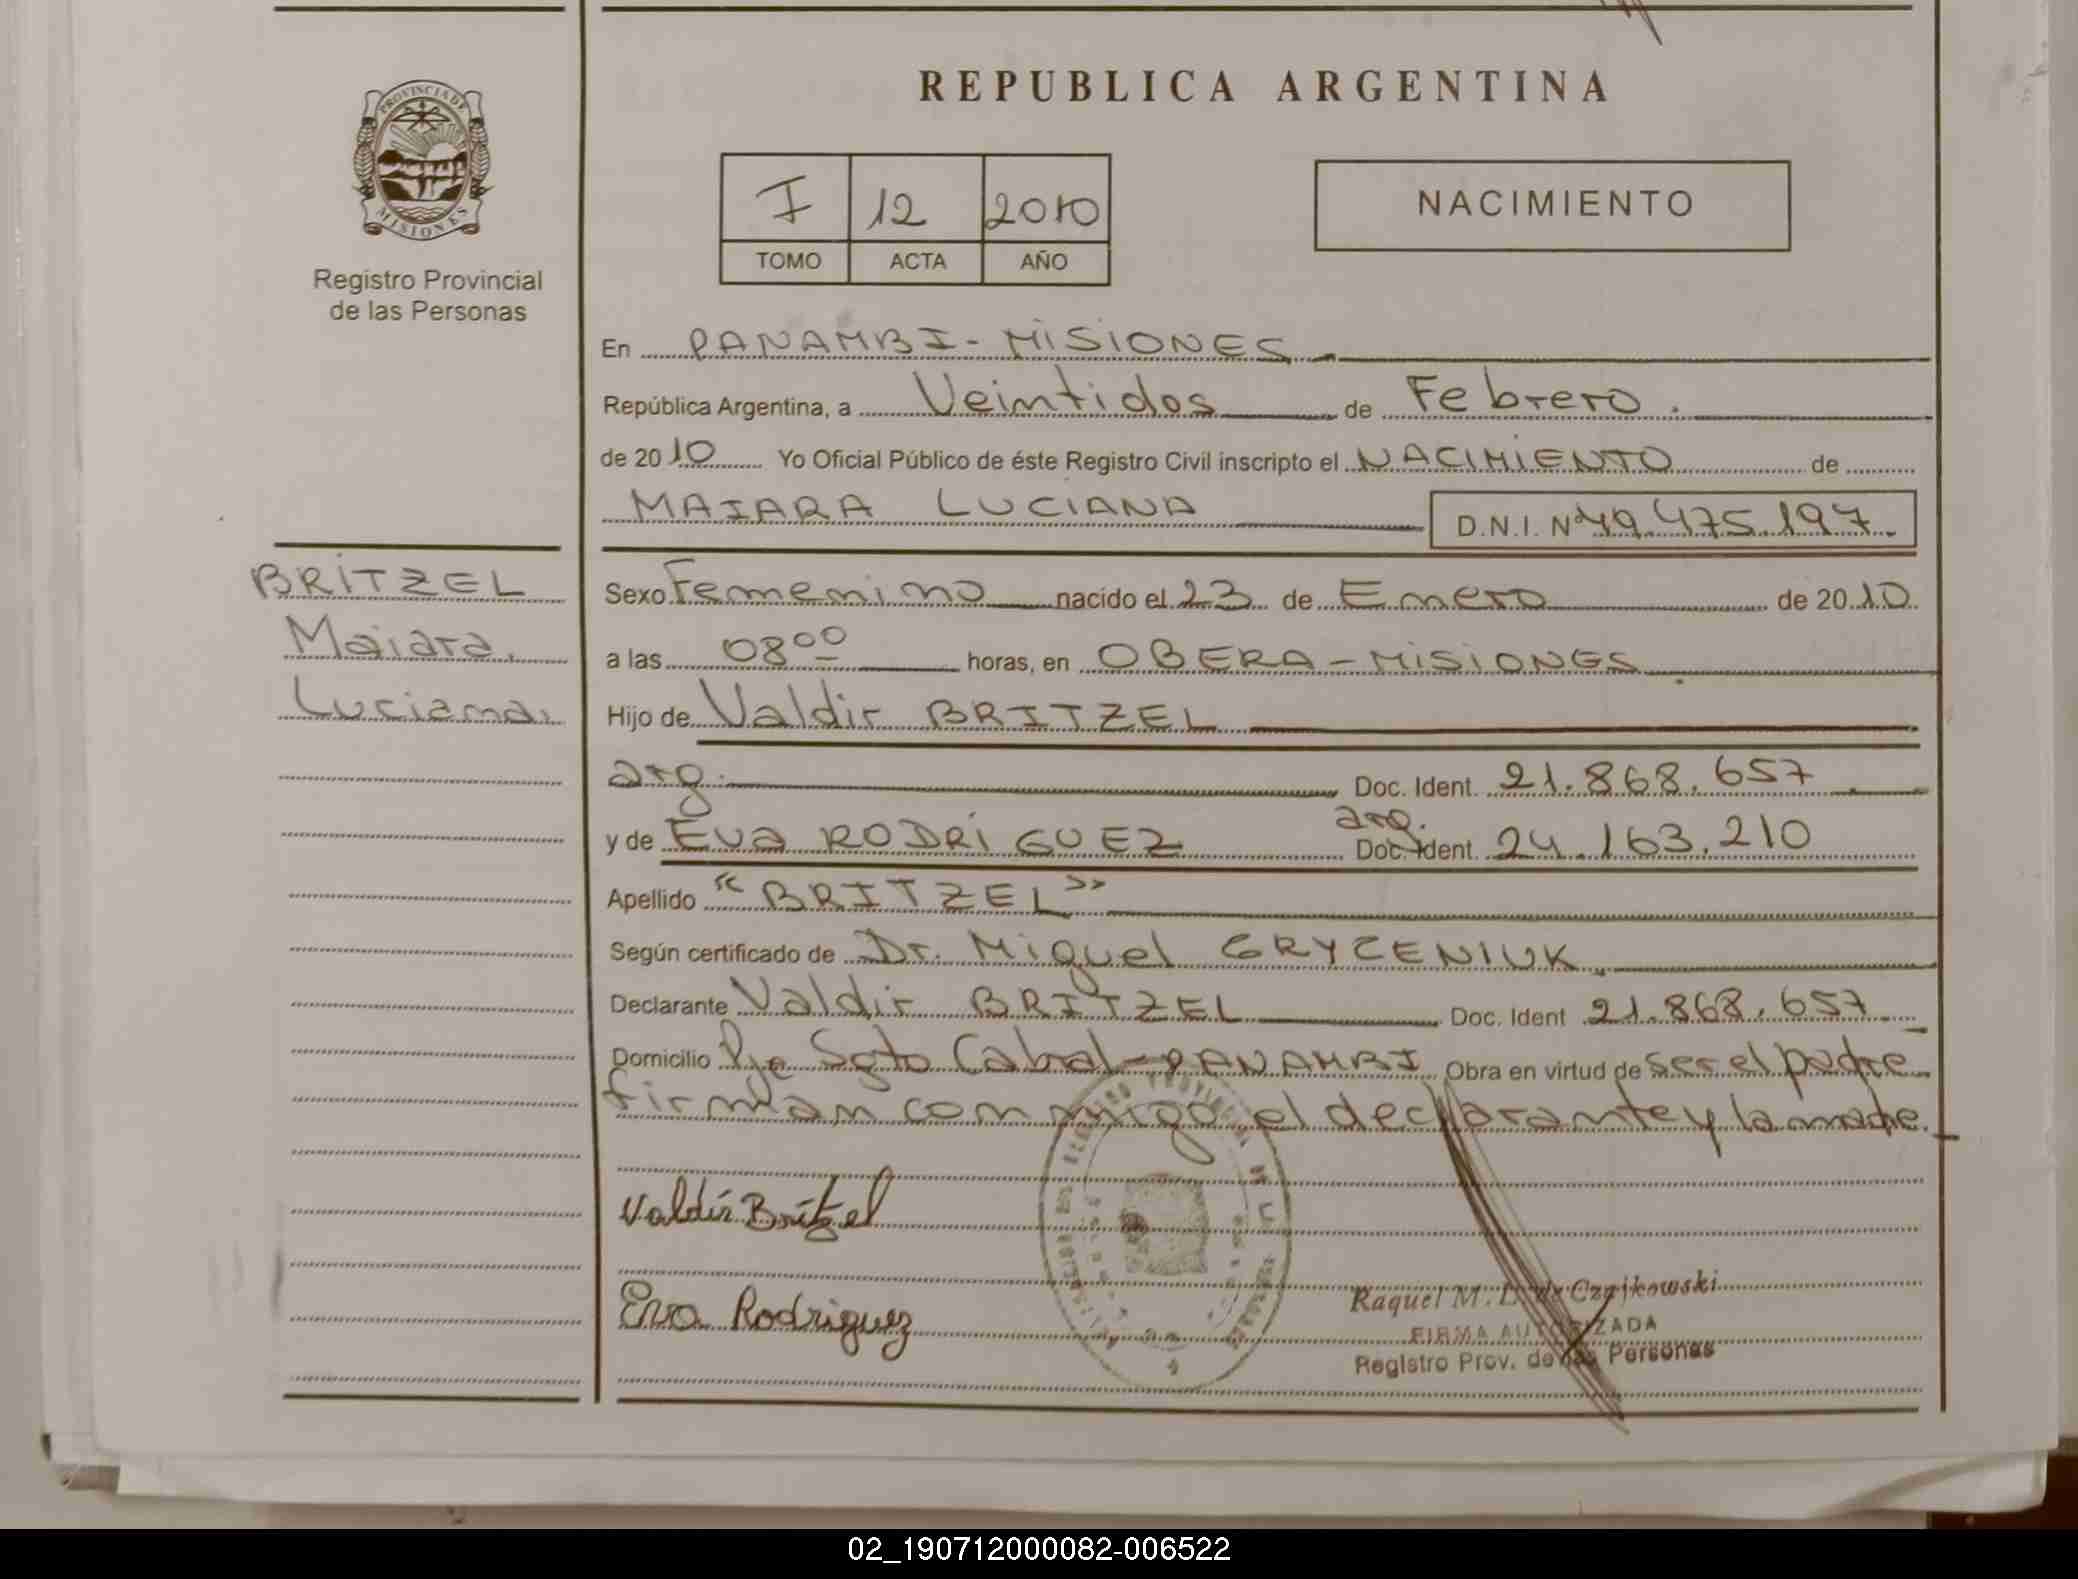 REPUBLICA ARGENTINA
PROVINCIA DE
MISIONES
Registro Provincial
de las Personas
I 12 2010
TOMO ACTA AÑO
NACIMIENTO
En PANAMBI - MISIONES
República Argentina, a Veintidos de Febrero.
de 2010 Yo Oficial Público de éste Registro Civil inscripto el NACIMIENTO de
MAIARA LUCIANA D.N.I. Nº 49.475.197.
BRITZEL
Maiara
Luciana
Sexo Femenino nacido el 23 de Enero de 2010
a las 08 00 horas, en OBERA - MISIONES
Hijo de Valdir BRITZEL
arg. Doc. Ident. 21.868.657
y de Eva RODRIGUEZ arg. Doc. Ident. 24.163.210
Apellido "BRITZEL"
Según certificado de Dr. Miguel GRYCENIUK
Declarante Valdir BRITZEL Doc. Ident 21.868.657
Domicilio Pje Sgto Cabral - PANAMBI Obra en virtud de ser el padre
firman conmigo el declarante y la madre.
Valdir Britzel
Eva Rodriguez
Raquel M. L. de Czajkowski
FIRMA AUTORIZADA
Registro Prov. de las Personas
02_190712000082-006522